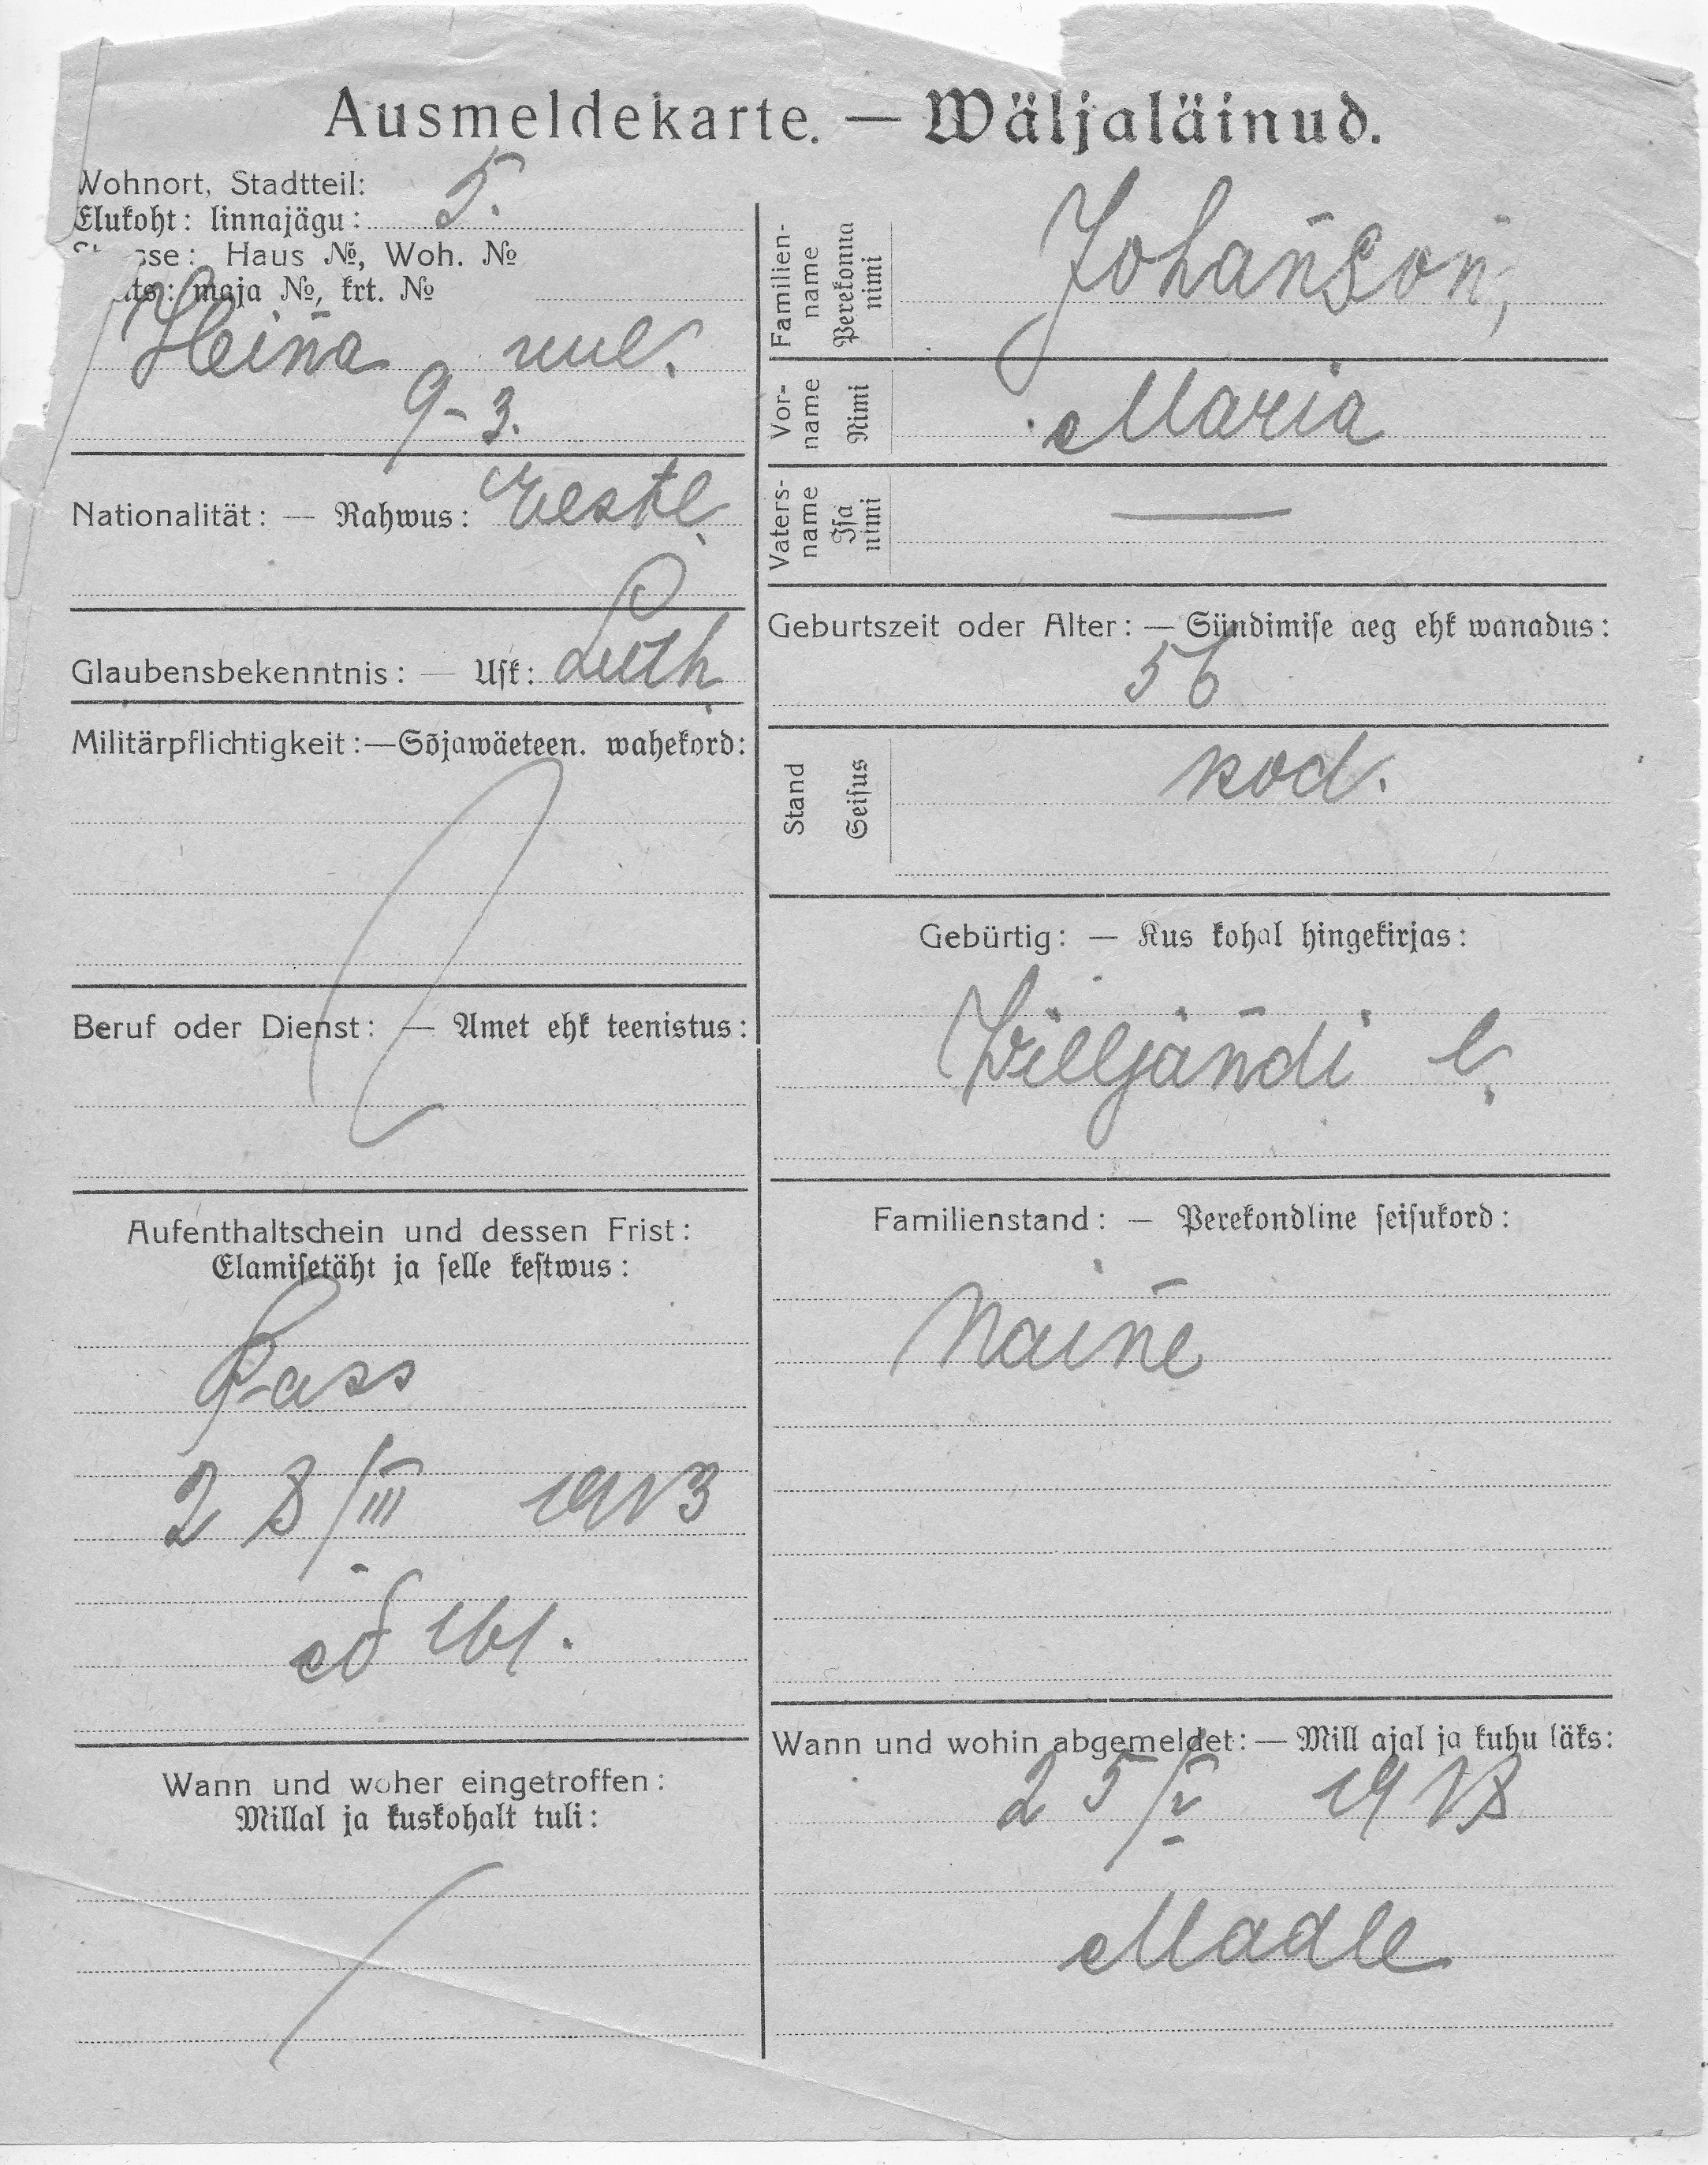 Ausmeldekarte. — Wäljaläinud.
Wohnort, Stadtteil:
Elukoht: linnajägu: 5.
sse: Haus №, Woh. №
ts: maja №, krt. №
Heina uul.
9-3.
Nationalität: — Rahwus: Eestl.
Glaubensbekenntnis: — Usk: Luth.
Militärpflichtigkeit: — Sõjawäeteen. wahekord:
Beruf oder Dienst: — Amet ehk teenistus:
Aufenthaltschein und dessen Frist:
Elamisetäht ja selle kestwus:
Pass
28/III 1913
161.
Wann und woher eingetroffen:
Millal ja kuskohalt tuli:
Familien-name Perekonna nimi Johanson,
Vor-name Nimi Maria
Vaters-name Isa nimi —
Geburtszeit oder Alter: — Sündimise aeg ehk wanadus:
56
Stand Seisus kod.
Gebürtig: — Kus kohal hingekirjas:
Williandi l.
Familienstand: — Perekondline seisukord:
Naine
Wann und wohin abgemeldet: — Mill ajal ja kuhu läks:
25/V 1918
Madle